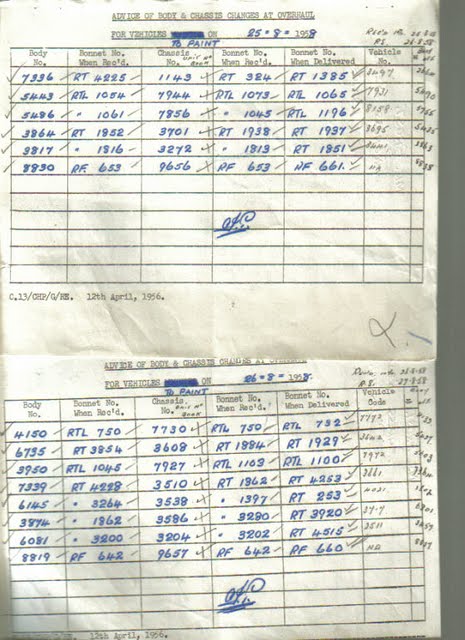 ADVICE OF BODY & CHASSIS CHANGES AT OVERHAUL
FOR VEHICLES ON 25 = 8 = 1958
TO PAINT
Body No. Bonnet No. When Rec'd. Chassis No. Bonnet No. When Rec'd. Bonnet No. When Delivered Vehicle No.
7336 RT 4225 1143 RT 324 RT 1385 3497
5443 RTL 1054 7944 RTL 1073 RTL 1065 7931
5486 " 1061 7856 " 1045 RTL 1196 8158
3864 RT 1852 3701 RT 1938 RT 1937 3695
3817 " 1816 3272 " 1813 RT 1851
8830 RF 653 9656 RF 653 RF 661 NA
C.13/CHP/G/RE. 12th April, 1956.
ADVICE OF BODY & CHASSIS CHANGES AT OVERHAUL
FOR VEHICLES ON 26 = 8 = 1958
TO PAINT
Body No. Bonnet No. When Rec'd. Chassis No. Bonnet No. When Rec'd. Bonnet No. When Delivered Vehicle Code
4150 RTL 750 7730 RTL 750 RTL 732 7772
6735 RT 3854 3608 RT 1884 RT 1929
3950 RTL 1045 7927 RTL 1103 RTL 1100 7972
7339 RT 4228 3510 RT 1362 RT 4253 3661
6145 " 3264 3538 " 1397 RT 253 4021
3874 " 1862 3586 " 3280 RT 3920
6081 " 3200 3204 " 3202 RT 4515 3511
8819 RF 642 9657 RF 642 RF 660 NA
12th April, 1956.